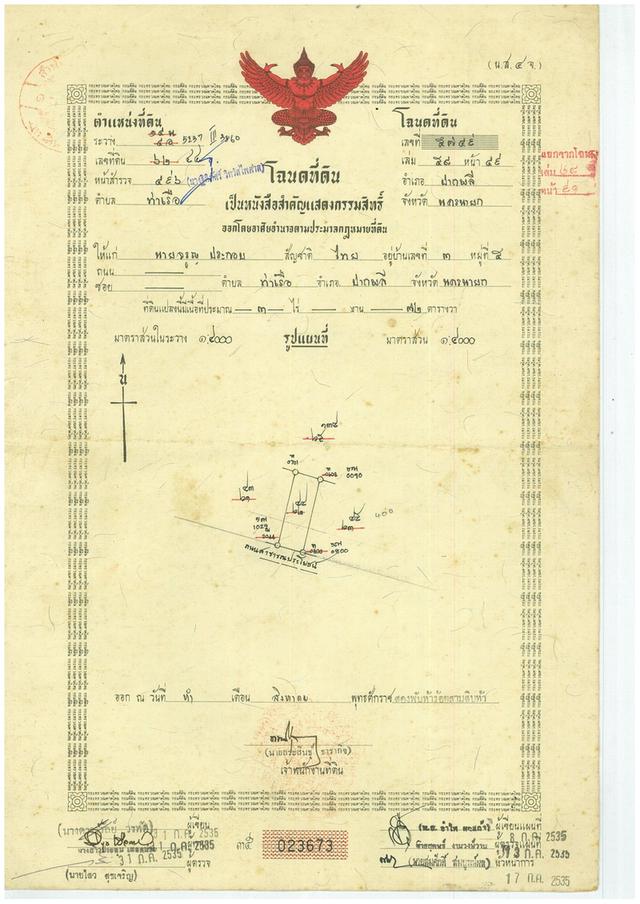 (น.ส. ๔ จ.)
ตำแหน่งที่ดิน
ระวาง 5137 III 3860
เลขที่ดิน ๖๒ ๔๔
หน้าสำรวจ ๕๙๖
ตำบล ท่าเรือ
โฉนดที่ดิน
เลขที่ ๕๗๕๙
เล่ม ๕๘ หน้า ๕๙
อำเภอ ปากพลี
จังหวัด นครนายก
แยกจากโฉนด
เล่ม
หน้า
โฉนดที่ดิน
เป็นหนังสือสำคัญแสดงกรรมสิทธิ์
ออกโดยอาศัยอำนาจตามประมวลกฎหมายที่ดิน
ให้แก่ นายจรูญ ประกอบ สัญชาติ ไทย อยู่บ้านเลขที่ ๓ หมู่ที่ ๕
ถนน
ซอย ตำบล ท่าเรือ อำเภอ ปากพลี จังหวัด นครนายก
ที่ดินแปลงนี้มีเนื้อที่ประมาณ — ๓ — ไร่ — งาน — ๗๒ ตารางวา
มาตราส่วนในระวาง ๑:๔๐๐๐ รูปแผนที่ มาตราส่วน ๑:๔๐๐๐
น
๔๓
๔๔
๔๕
ถนนสาธารณประโยชน์
ออก ณ วันที่ ห้า เดือน สิงหาคม พุทธศักราช สองพันห้าร้อยสามสิบห้า
เจ้าพนักงานที่ดิน
ผู้เขียน
31 ก.ค. 2535
31 ก.ค. 2535
ผู้ตรวจ
(นายไสว สุรเจริญ)
023673
ผู้เขียนแผนที่
8 ก.ค. 2535
ผู้ตรวจแผนที่
13 ก.ค. 2535
หัวหน้าการ
17 ก.ค. 2535